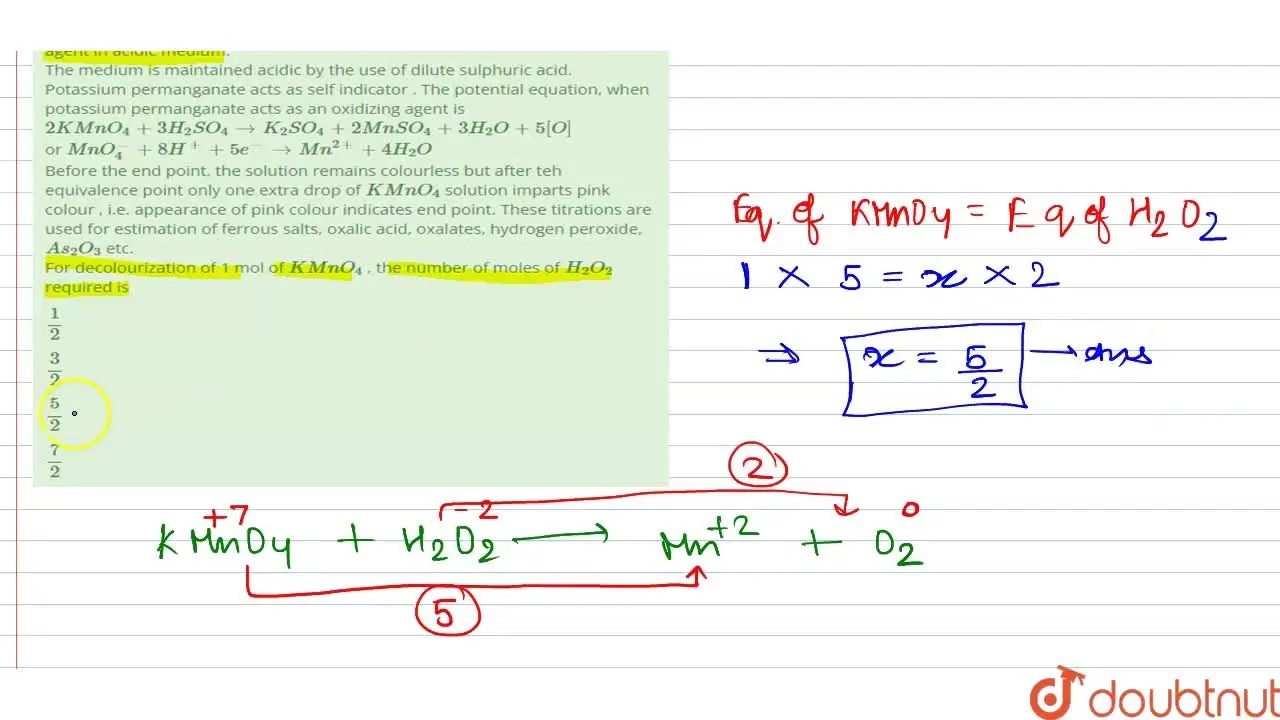 agent in acidic medium.
The medium is maintained acidic by the use of dilute sulphuric acid.
Potassium permanganate acts as self indicator . The potential equation, when
potassium permanganate acts as an oxidizing agent is
2KMnO₄ + 3H₂SO₄ → K₂SO₄ + 2MnSO₄ + 3H₂O + 5[O]
or MnO₄⁻ + 8H⁺ + 5e⁻ → Mn²⁺ + 4H₂O
Before the end point. the solution remains colourless but after teh
equivalence point only one extra drop of KMnO₄ solution imparts pink
colour , i.e. appearance of pink colour indicates end point. These titrations are
used for estimation of ferrous salts, oxalic acid, oxalates, hydrogen peroxide,
As₂O₃ etc.
For decolourization of 1 mol of KMnO₄ , the number of moles of H₂O₂
required is
1/2
3/2
5/2
7/2
Eq. of KMnO4 = Eq of H2O2
1 × 5 = x × 2
⇒ x = 5/2 → Ans
2
+7 -2 +2 0
KMnO4 + H2O2 → Mn+2 + O2
5
doubtnut